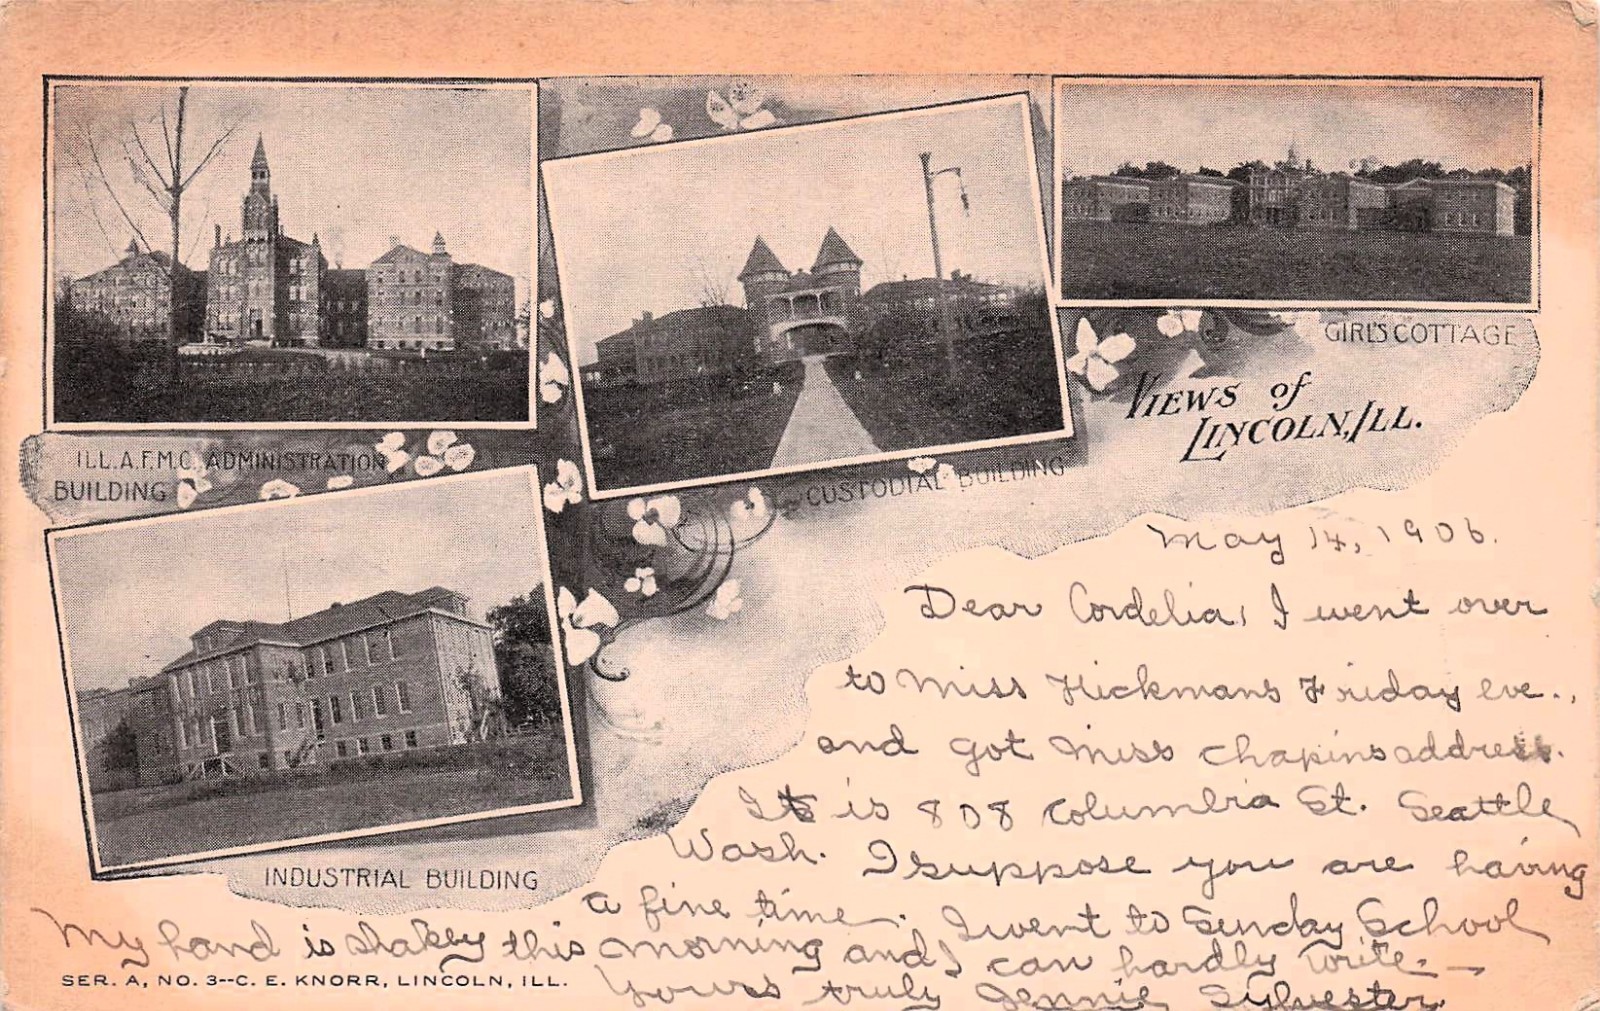 ILL.A.F.M.C. ADMINISTRATION
BUILDING
CUSTODIAL BUILDING
GIRL'S COTTAGE
VIEWS of
LINCOLN, ILL.
INDUSTRIAL BUILDING
May 14, 1906.
Dear Cordelia, I went over
to Miss Hickmans Friday eve.,
and got Miss Chapins address.
It is 808 Columbia St. Seattle
Wash. I suppose you are having
a fine time. I went to Sunday School
My hand is shakey this morning and I can hardly write.
Yours truly Jennie Sylvester
SER. A, NO. 3--C. E. KNORR, LINCOLN, ILL.